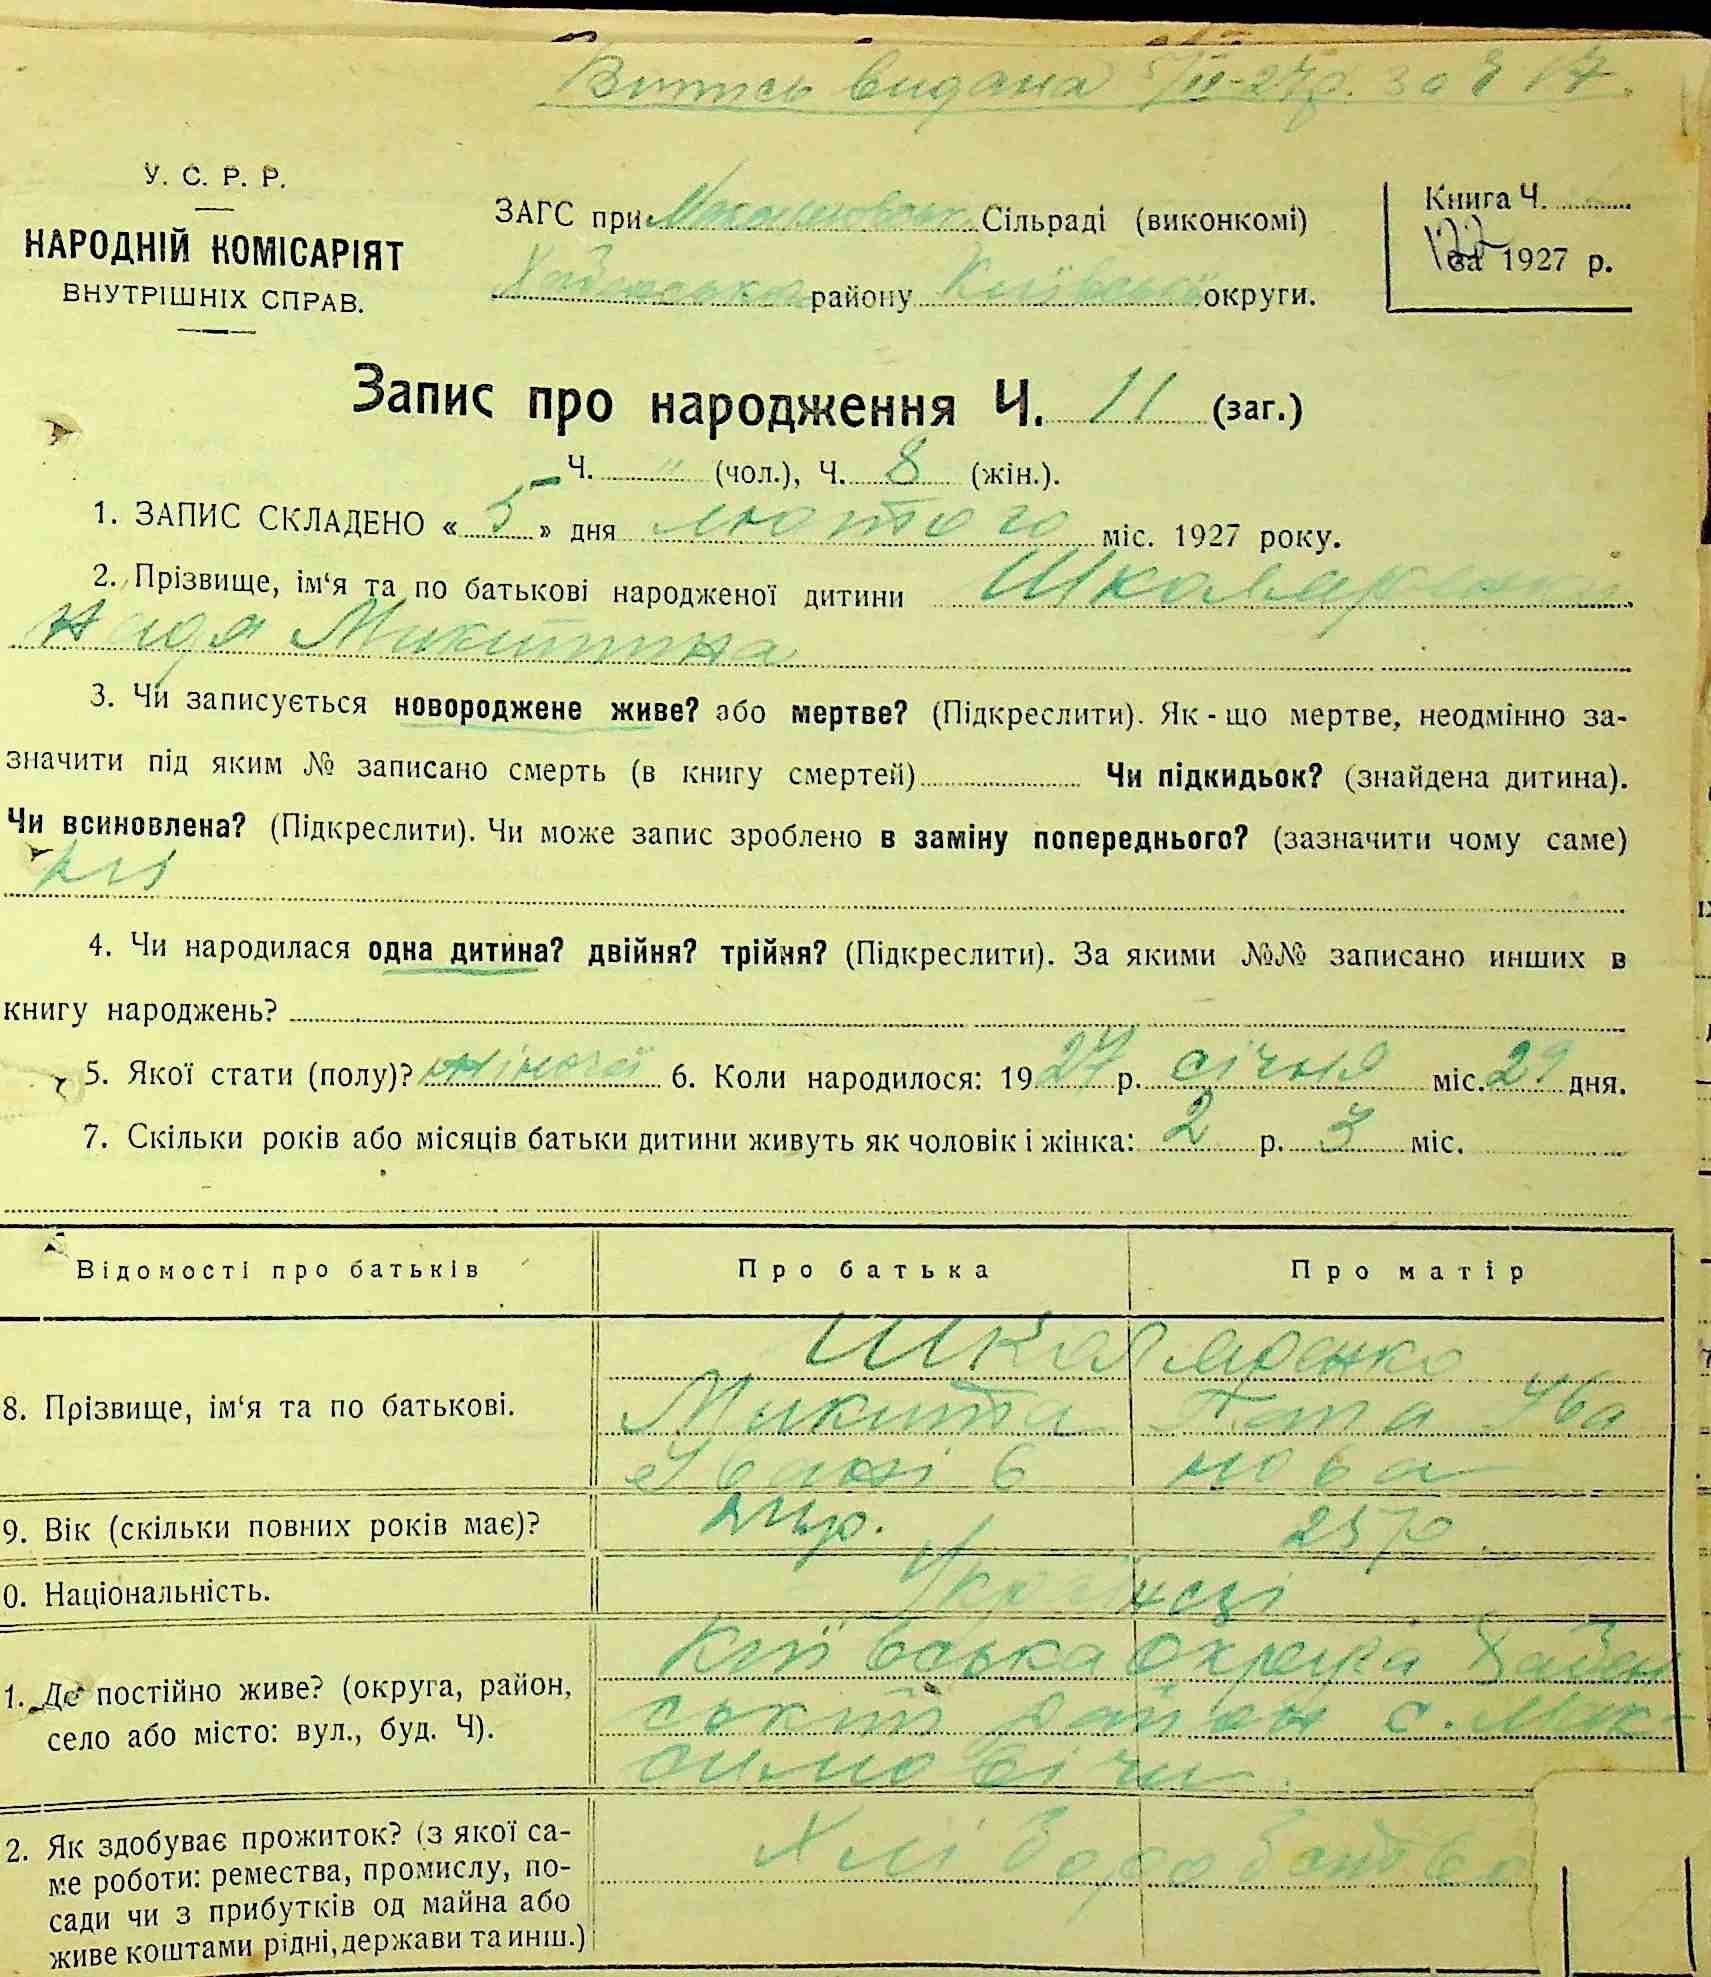 Випись видана 5/II-27р. за № 17.
У. С. Р. Р.
НАРОДНІЙ КОМІСАРІЯТ
ВНУТРІШНІХ СПРАВ.
ЗАГС при Сільраді (виконкомі)
району Київської округи.
Книга Ч.
за 1927 р.
Запис про народження Ч. 11 (заг.)
Ч. " (чол.), Ч. 8 (жін.).
1. ЗАПИС СКЛАДЕНО « 5 » дня лютого міс. 1927 року.
2. Прізвище, ім‘я та по батькові народженої дитини
Надя Микитина
3. Чи записується новороджене живе? або мертве? (Підкреслити). Як - що мертве, неодмінно за-
значити під яким № записано смерть (в книгу смертей) Чи підкидьок? (знайдена дитина).
Чи всиновлена? (Підкреслити). Чи може запис зроблено в заміну попереднього? (зазначити чому саме)
ні
4. Чи народилася одна дитина? двійня? трійня? (Підкреслити). За якими №№ записано инших в
книгу народжень?
5. Якої стати (полу)? жіночої 6. Коли народилося: 1927 р. січня міс. 29 дня.
7. Скільки років або місяців батьки дитини живуть як чоловік і жінка: 2 р. 3 міс.
Відомості про батьків Про батька Про матір
8. Прізвище, ім‘я та по батькові.
Микита Ива
Іванів нова
9. Вік (скільки повних років має)? 25 р
0. Національність. Українці
1. Де постійно живе? (округа, район,
село або місто: вул., буд. Ч).
Київська округа Хабен
ський район с. Мак-
симовічи
2. Як здобуває прожиток? (з якої са-
ме роботи: ремества, промислу, по-
сади чи з прибутків од майна або
живе коштами рідні, держави та инш.)
Хліборобство